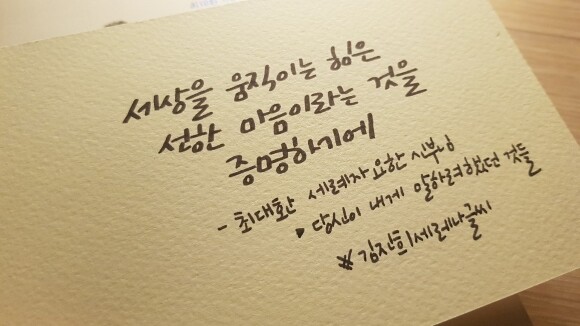 세상을 움직이는 힘은
선한 마음이라는 것을
증명하기에
- 최대환 세례자요한 신부님
▶ 당신이 내게 말하려했던 것들
#김잔희세레나글씨